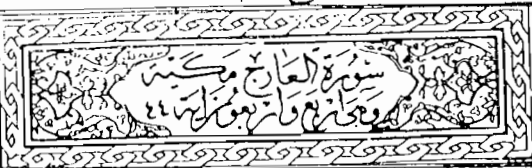 سُورَةُ الْمَعَارِجِ مَكِّيَّةٌ
وَهِيَ أَرْبَعٌ وَأَرْبَعُونَ آيَةً ٤٤